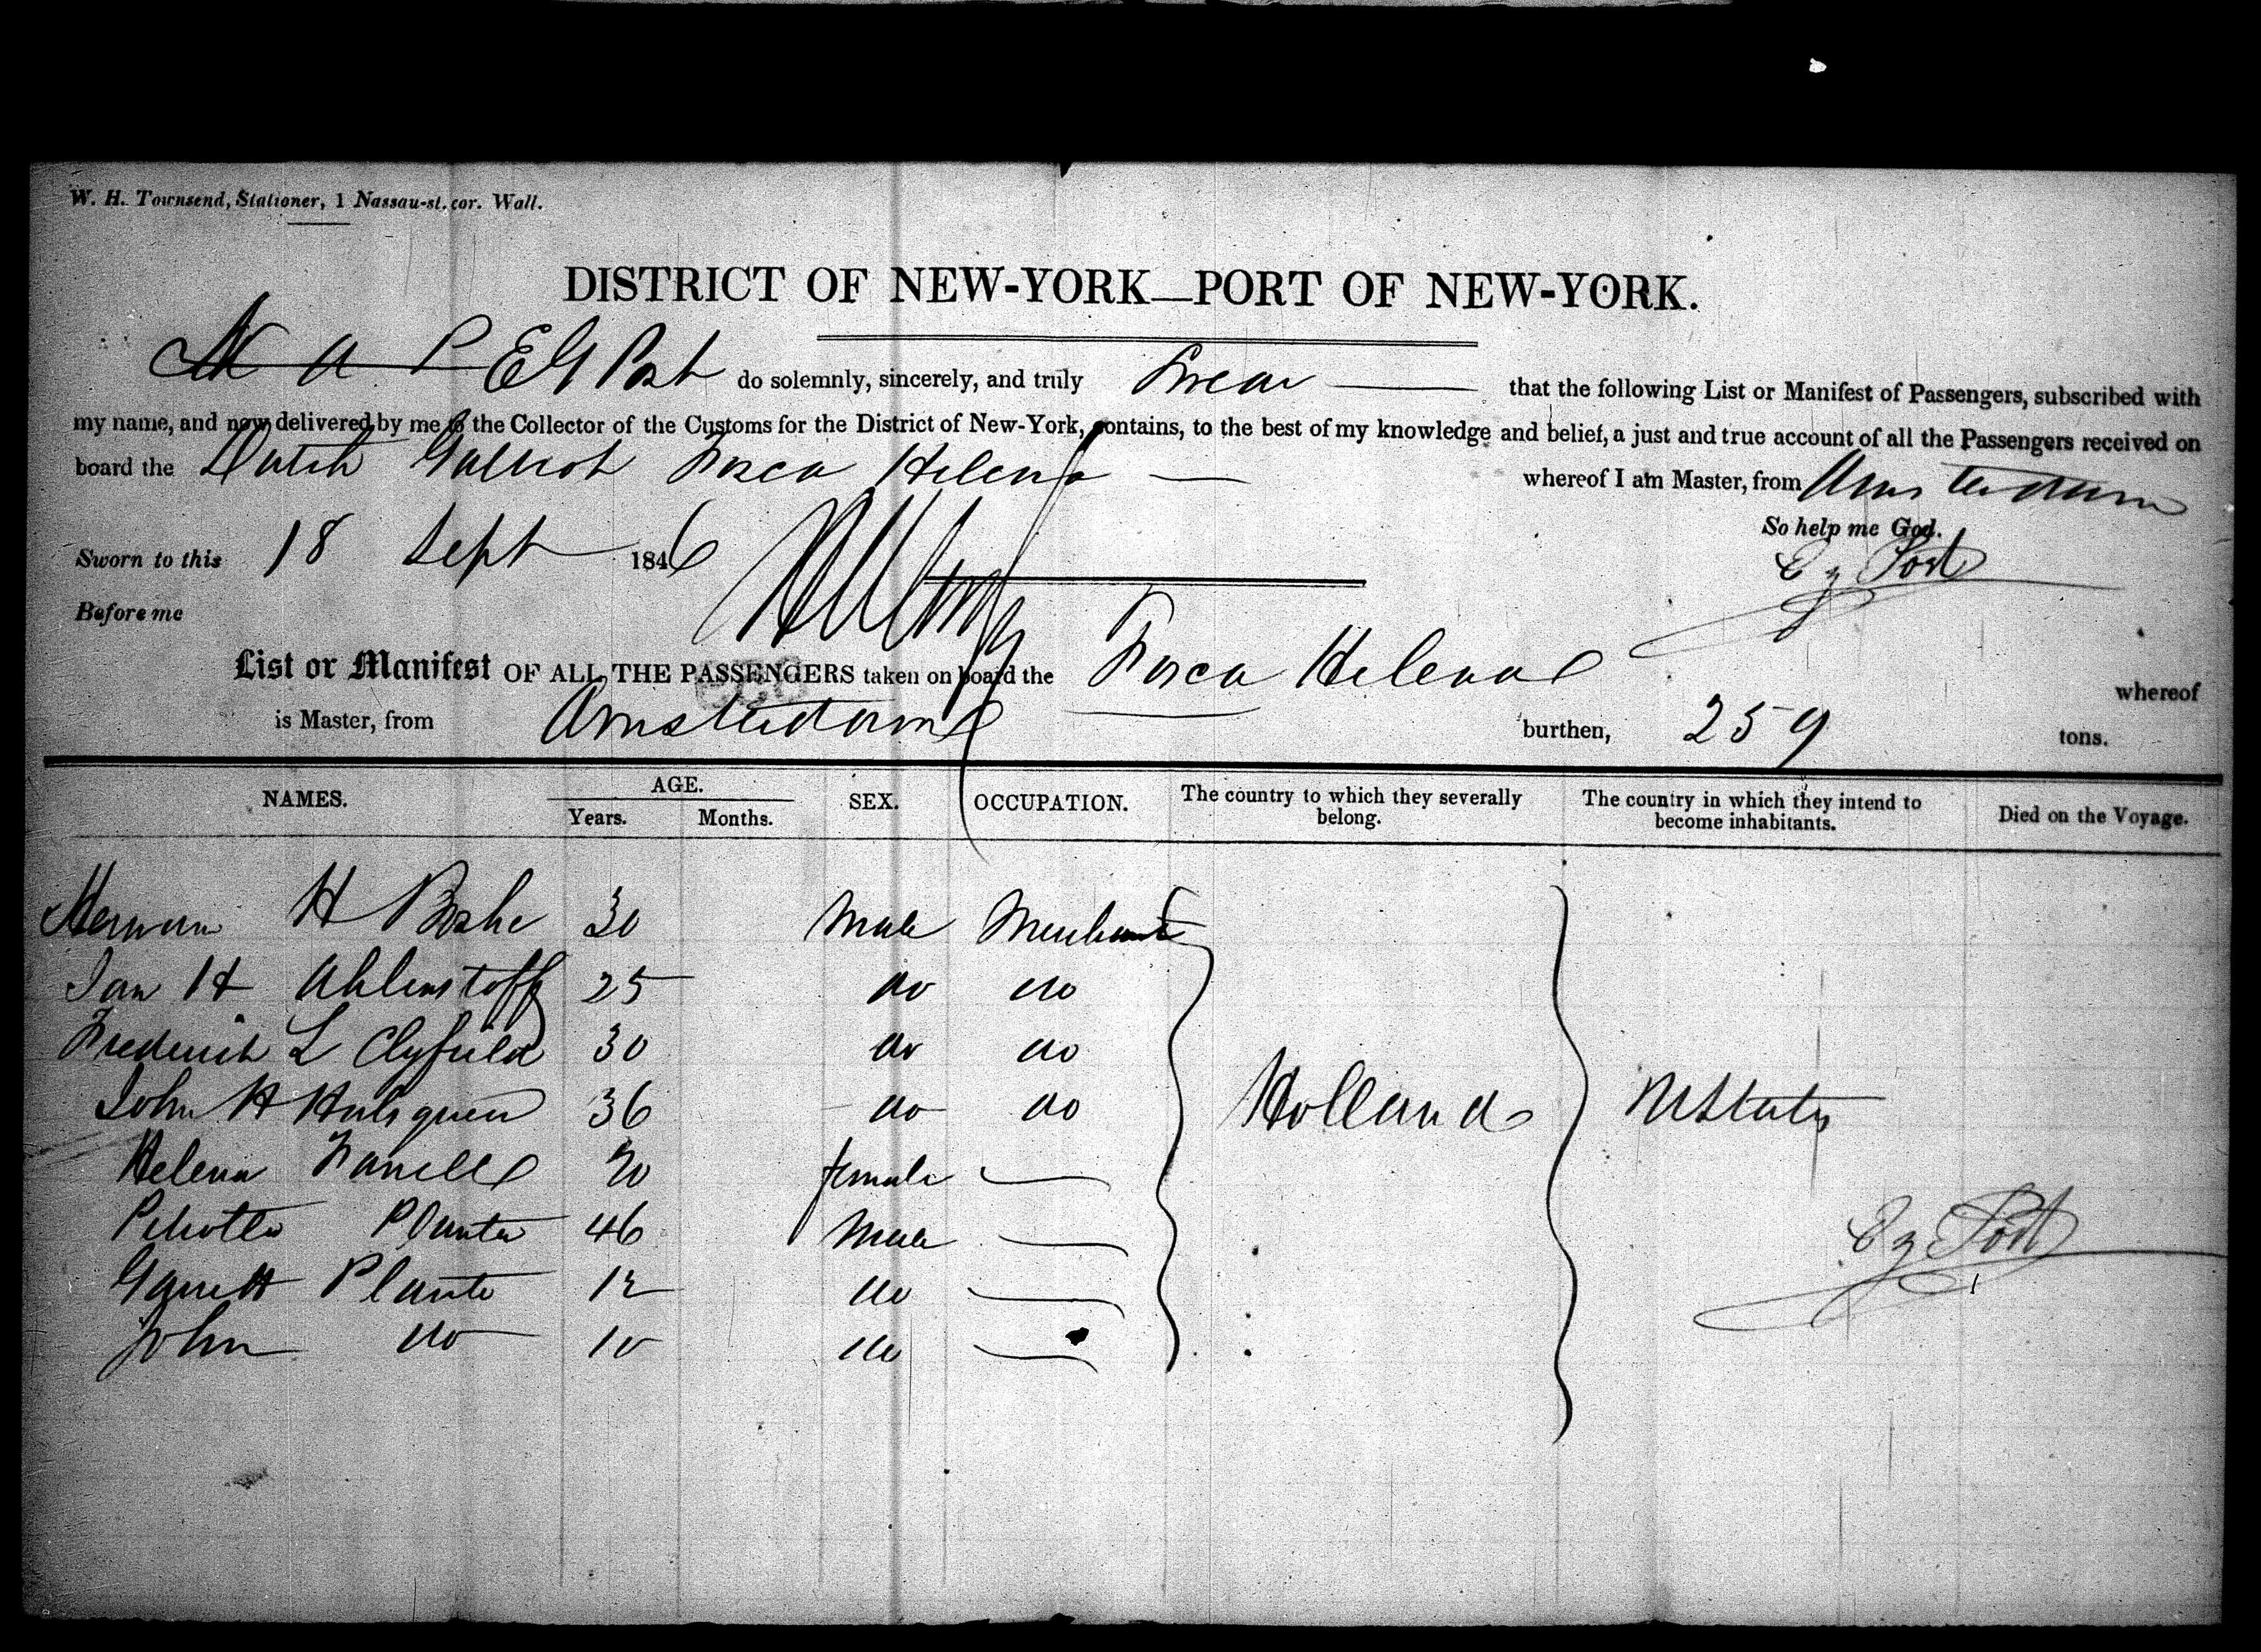 W. H. Townsend, Stationer, 1 Nassau-st. cor. Wall.
DISTRICT OF NEW-YORK—PORT OF NEW-YORK.
E G Post do solemnly, sincerely, and truly Swear that the following List or Manifest of Passengers, subscribed with
my name, and now delivered by me to the Collector of the Customs for the District of New-York, contains, to the best of my knowledge and belief, a just and true account of all the Passengers received on
board the Dutch Galliot Fosca Helena whereof I am Master, from Amsterdam
So help me God.
Sworn to this 18 Sept 1846
E G Post
Before me
List or Manifest OF ALL THE PASSENGERS taken on board the Fosca Helena whereof
is Master, from Amsterdam burthen, 259 tons.
NAMES. AGE. SEX. OCCUPATION. The country to which they severally belong. The country in which they intend to become inhabitants. Died on the Voyage.
Years. Months.
Herman H Boshe 30 Male Merchant
Jan H Ahlenstoff 25 do do
Frederich L Clyfield 30 do do
John H Hulsquen 36 do do Holland UStates
Helena 20 female
46 Male E G Post
Garrett Plante 12 do
John do 10 do